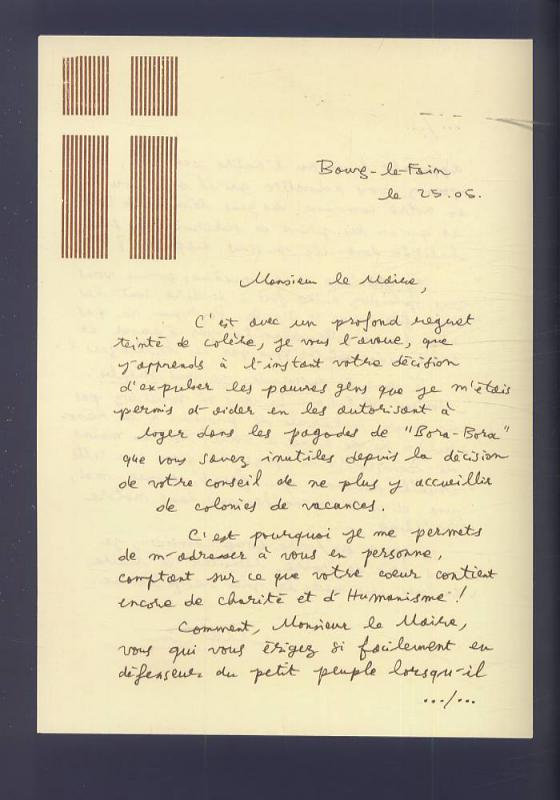 Bourg-le-Fain
le 25.05.
Monsieur le Maire,
C'est avec un profond regret
teinté de colère, je vous l'avoue, que
j'apprends à l'instant votre décision
d'expulser les pauvres gens que je m'étais
permis d'aider en les autorisant à
loger dans les pagodes de "Bora-Bora"
que vous savez inutiles depuis la décision
de votre conseil de ne plus y accueillir
de colonies de vacances.
C'est pourquoi je me permets
de m'adresser à vous en personne,
comptant sur ce que votre cœur contient
encore de charité et d'Humanisme !
Comment, Monsieur le Maire,
vous qui vous érigez si facilement en
défenseur du petit peuple lorsqu'il
.../...